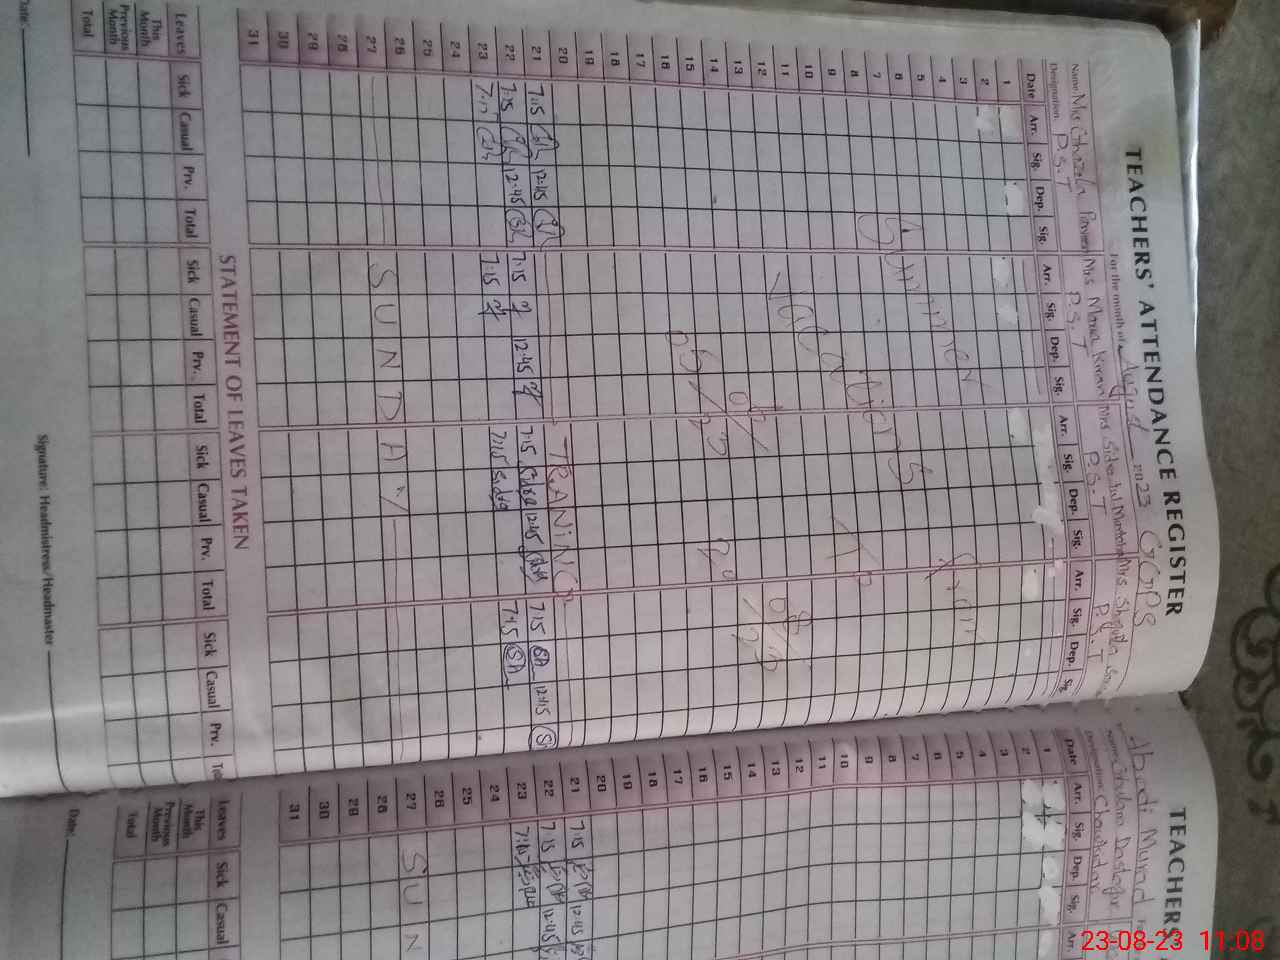 TEACHERS' ATTENDANCE REGISTER
For the month of August 2023 GGPS
Name Mrs Ghazala Parveen Mrs Maria Kiran Mrs Sidra tul Muntaha Mrs Shagufta
Designation P.S.T P.S.T P.S.T P.S.T
Date Arr. Sig. Dep. Sig. Arr. Sig. Dep. Sig. Arr. Sig. Dep. Sig. Arr. Sig. Dep. Sig
1
2
3
4
5
6
7
8
9
10
11
12
13
14
15
16
17
18
19
20
21 7:15 12:45 7:15 12:45 7:15 12:45 7:15 SA 12:45
22 7:15 12:45 7:15 7:15 Sidra 7:15 SA
23 7:15
24
25
26
27
28
29
30
31
Summer From
Vacations
05/ 08/23
TO
20 08/23
TRANiNG
SUNDAY
STATEMENT OF LEAVES TAKEN
Leaves Sick Casual Prv. Total Sick Casual Prv. Total Sick Casual Prv. Total Sick Casual Prv.
This Month
Previous Month
Total
Date:
Signature: Headmistress/Headmaster
TEACHERS
Abadi Murad
Name Ghulam Dastagir
Designation Chowkidar
Date Arr. Sig. Dep. Sig. Arr.
1
2
3
4
5
6
7
8
9
10
11
12
13
14
15
16
17
18
19
20
21 7:15 12:45
22 7:15 12:45
23 7:15
24
25
26
27 SUN
28
29
30
31
Leaves Sick Casual
This Month
Previous Month
Total
Date:
23-08-23 11:08